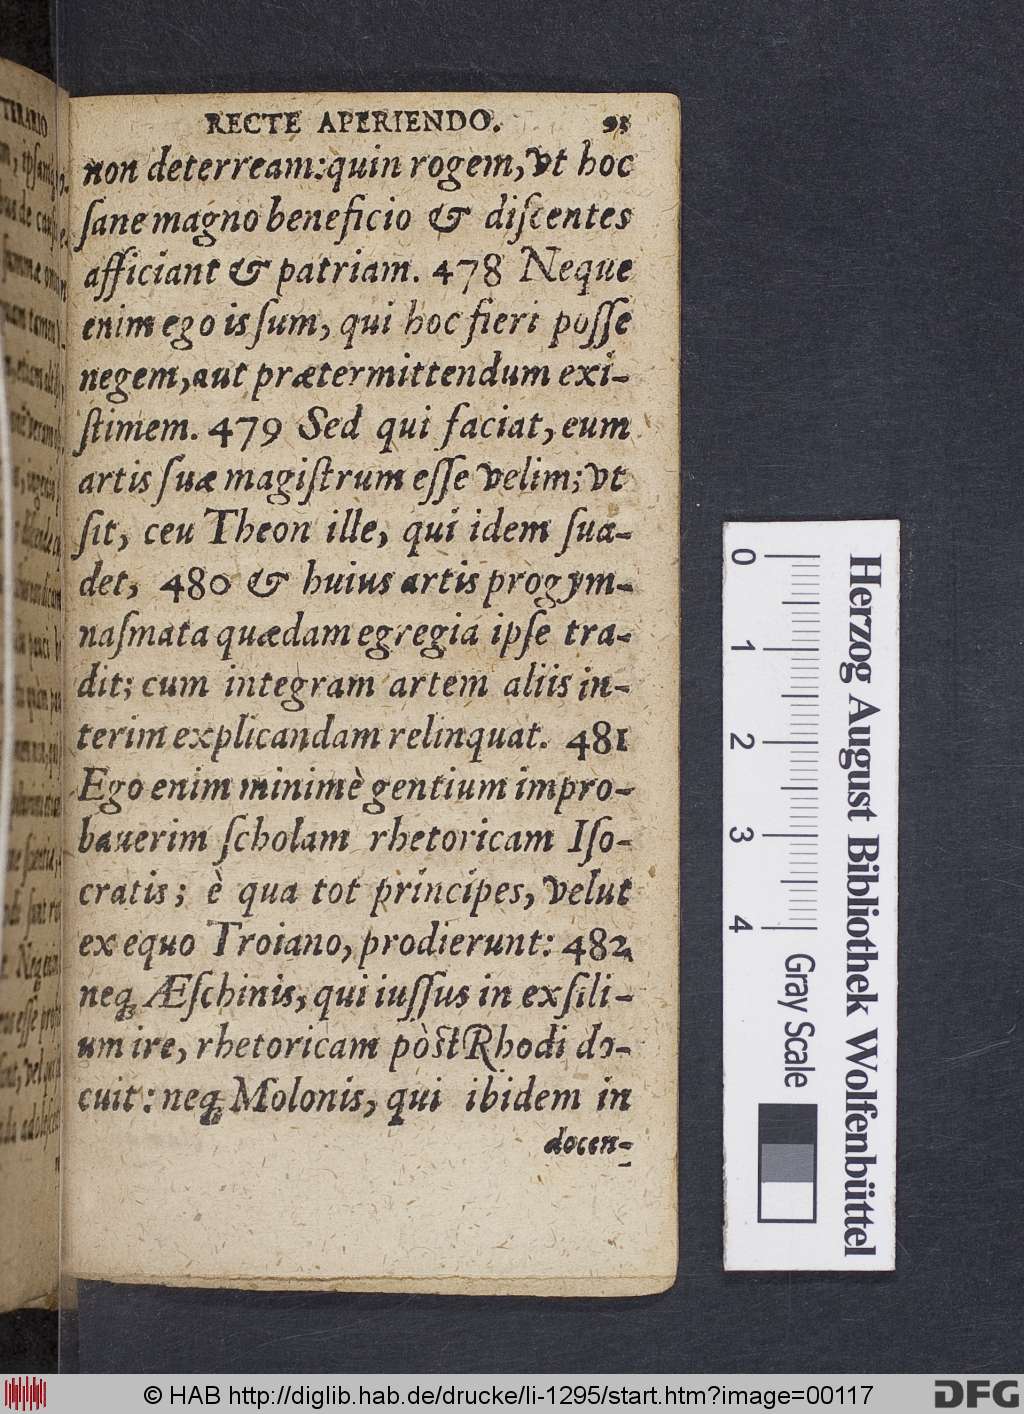 RECTE APERIENDO. 95
non deterream: quin rogem, vt hoc
ſane magno beneficio & diſcentes
afficiant & patriam. 478 Neque
enim ego is ſum, qui hoc fieri poſſe
negem, aut prætermittendum exi-
ſtimem. 479 Sed qui faciat, eum
artis ſuæ magiſtrum eſſe velim; vt
ſit, ceu Theon ille, qui idem ſua-
det, 480 & huius artis progym-
naſmata quædam egregia ipſe tra-
dit; cum integram artem aliis in-
terim explicandam relinquat. 481
Ego enim minimè gentium impro-
bauerim ſcholam rhetoricam Iſo-
cratis; è qua tot principes, velut
ex equo Troiano, prodierunt: 482
neq; Æſchinis, qui iuſſus in exſili-
um ire, rhetoricam pòſt Rhodi do-
cuit: neq; Molonis, qui ibidem in
docen-
TERARIO
0 1 2 3 4
Gray Scale
Herzog August Bibliothek Wolfenbüttel
© HAB http://diglib.hab.de/drucke/li-1295/start.htm?image=00117
DFG